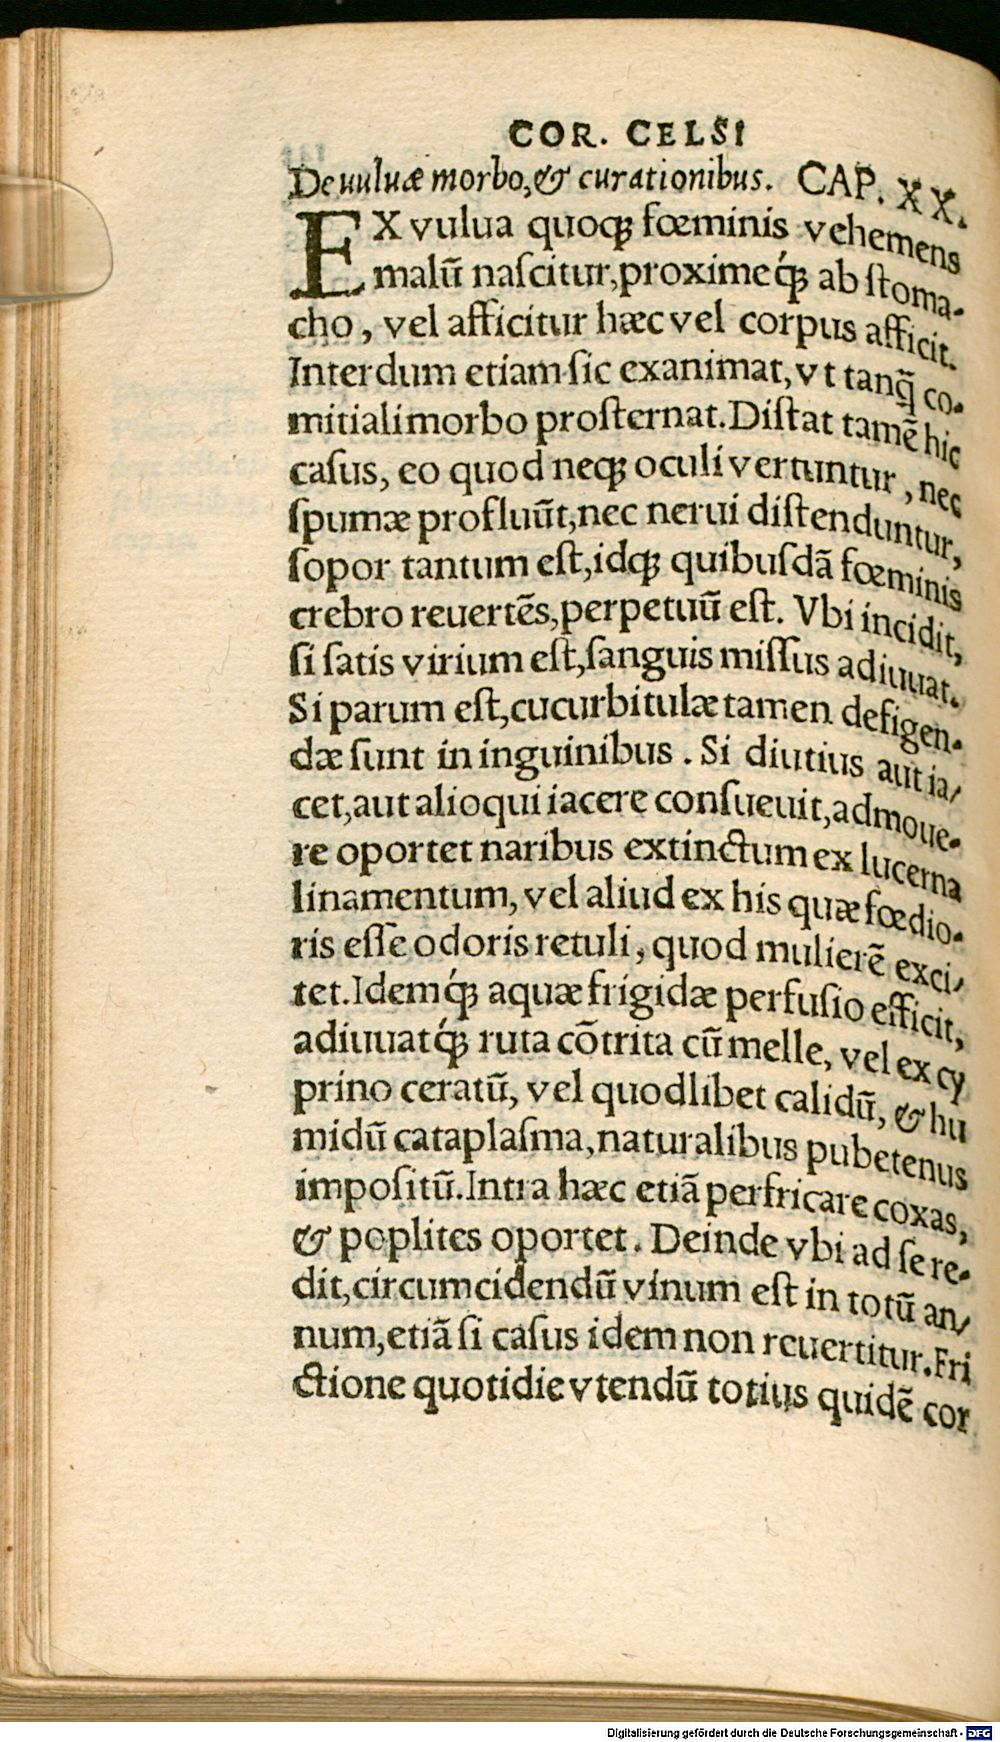 COR. CELSI
De uuluæ morbo, & curationibus. CAP. XX.
EX vulua quoqꝫ fœminis vehemens
malū naſcitur, proximeq́ꝫ ab ſtoma-
cho, vel afficitur hæc vel corpus afficit.
Interdum etiam ſic exanimat, vt tanq̃ co-
mitiali morbo proſternat. Diſtat tamē hic
caſus, eo quod neqꝫ oculi vertuntur, nec
ſpumæ profluūt, nec nerui diſtenduntur,
ſopor tantum eſt, idqꝫ quibuſdā fœminis
crebro reuertēs, perpetuū eſt. Vbi incidit,
ſi ſatis virium eſt, ſanguis miſſus adiuuat.
Si parum eſt, cucurbitulæ tamen defigen-
dæ ſunt in inguinibus. Si diutius aut ia/
cet, aut alioqui iacere conſueuit, admoue-
re oportet naribus extinctum ex lucerna
linamentum, vel aliud ex his quæ fœdio-
ris eſſe odoris retuli, quod mulierē exci/
tet. Idemq́ꝫ aquæ frigidæ perfuſio efficit,
adiuuatq́ꝫ ruta cōtrita cū melle, vel ex cy
prino ceratū, vel quodlibet calidū, & hu
midū cataplaſma, naturalibus pube tenus
impoſitū. Intra hæc etiā perfricare coxas,
& poplites oportet. Deinde vbi ad ſe re-
dit, circumcidendū vinum eſt in totū an/
num, etiā ſi caſus idem non reuertitur. Fri
ctione quotidie vtendū totius quidē cor
Digitalisierung gefördert durch die Deutsche Forschungsgemeinschaft - DFG